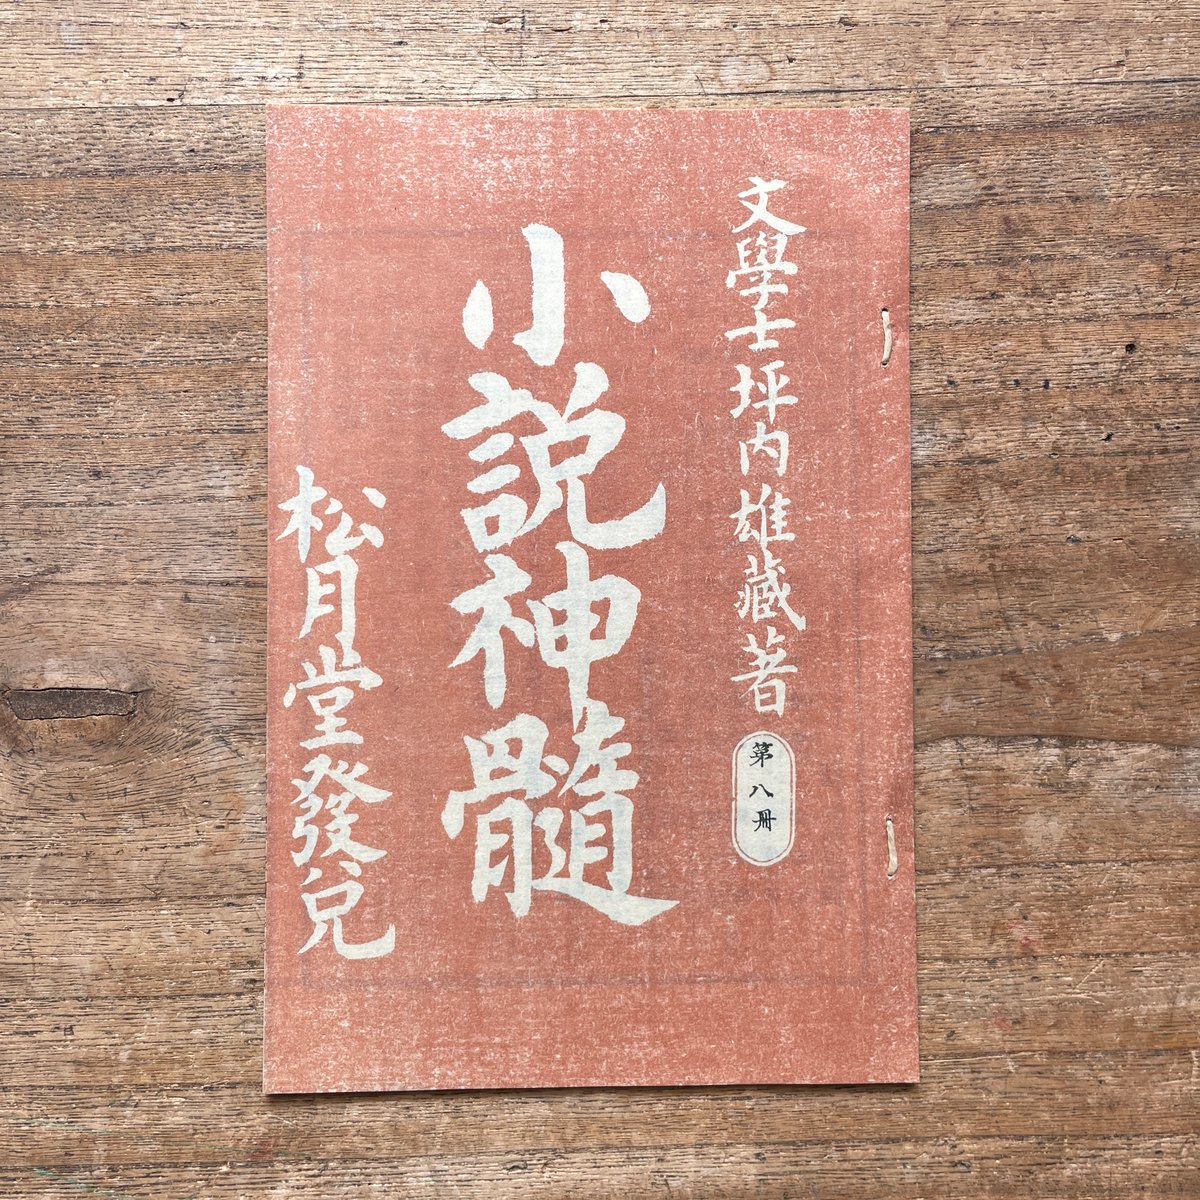 文學士坪内雄藏著
第八冊
小説神髓
松月堂發兌